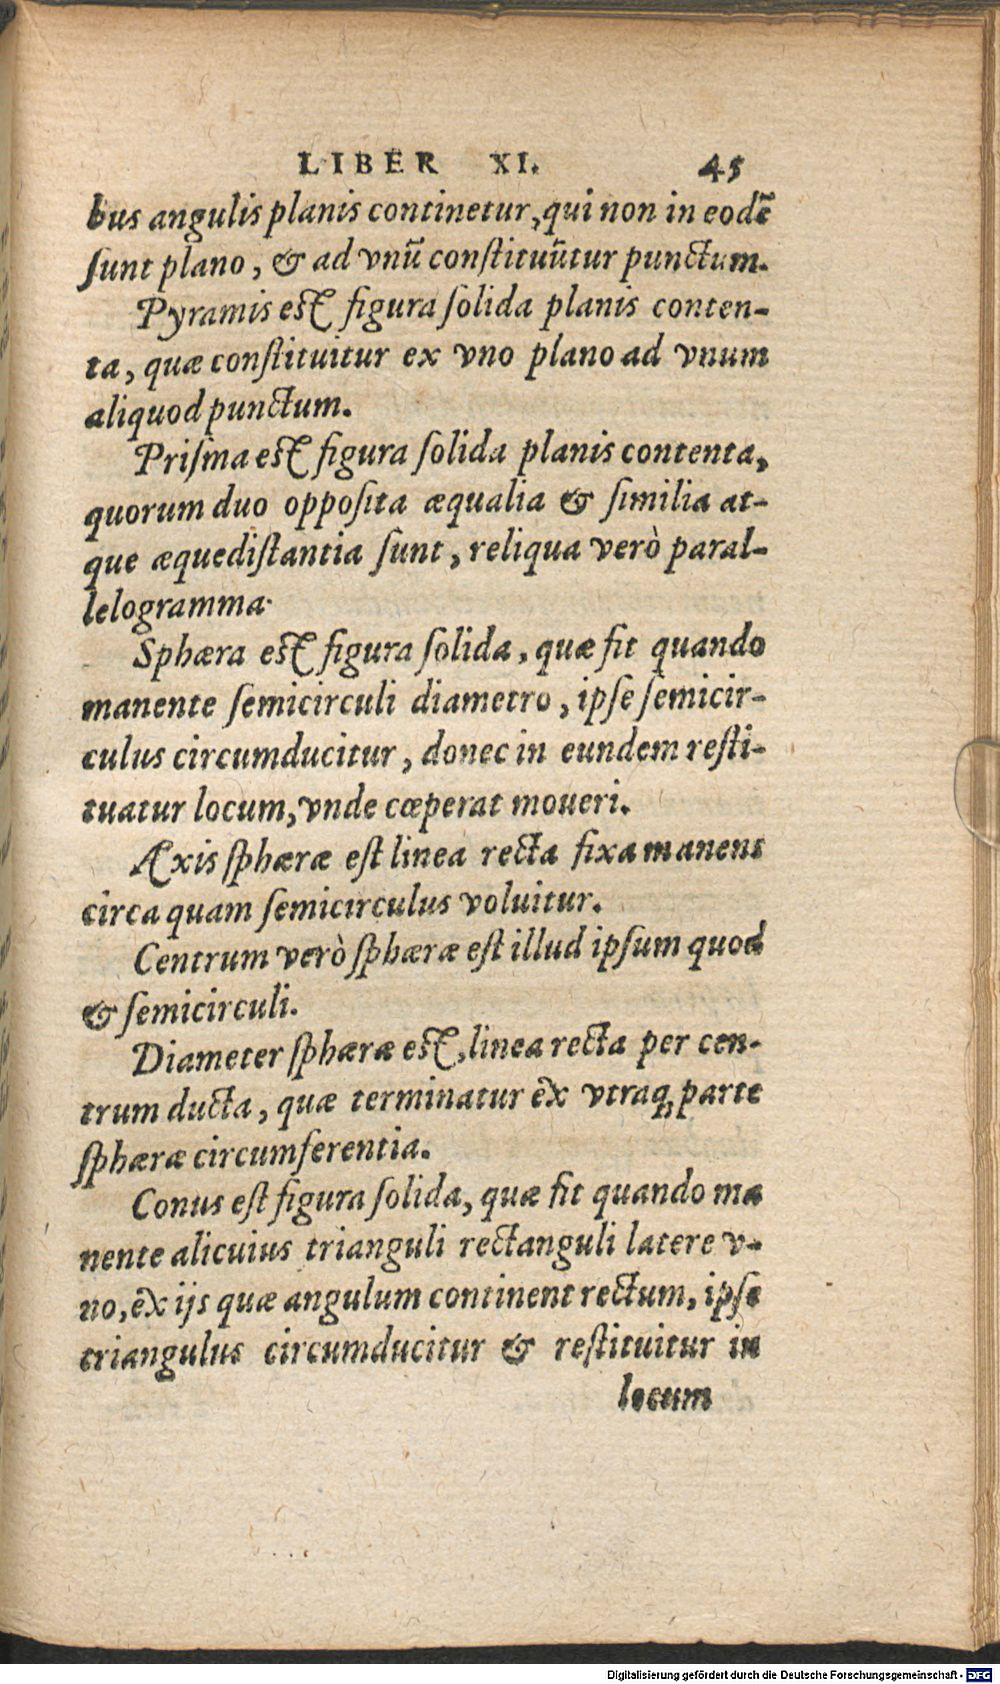 LIBER XI. 45
bus angulis planis continetur, qui non in eodē
ſunt plano, & ad vnū conſtituūtur punctum.
Pyramis est figura ſolida planis conten-
ta, quæ conſtituitur ex vno plano ad vnum
aliquod punctum.
Priſma est figura ſolida planis contenta,
quorum duo oppoſita æqualia & ſimilia at-
que æquediſtantia ſunt, reliqua verò paral-
lelogramma.
Sphæra est figura ſolida, quæ fit quando
manente ſemicirculi diametro, ipſe ſemicir-
culus circumducitur, donec in eundem reſti-
tuatur locum, vnde cœperat moueri.
Æxis ſphæræ eſt linea recta fixa manens
circa quam ſemicirculus voluitur.
Centrum verò ſphæræ eſt illud ipſum quod
& ſemicirculi.
Diameter ſphæræ est, linea recta per cen-
trum ducta, quæ terminatur ēx vtraq; parte
ſphæræ circumferentia.
Conus eſt figura ſolida, quæ fit quando ma
nente alicuius trianguli rectanguli latere v-
no, ēx ijs quæ angulum continent rectum, ipſe
triangulus circumducitur & reſtituitur in
locum
Digitalisierung gefördert durch die Deutsche Forschungsgemeinschaft - DFG